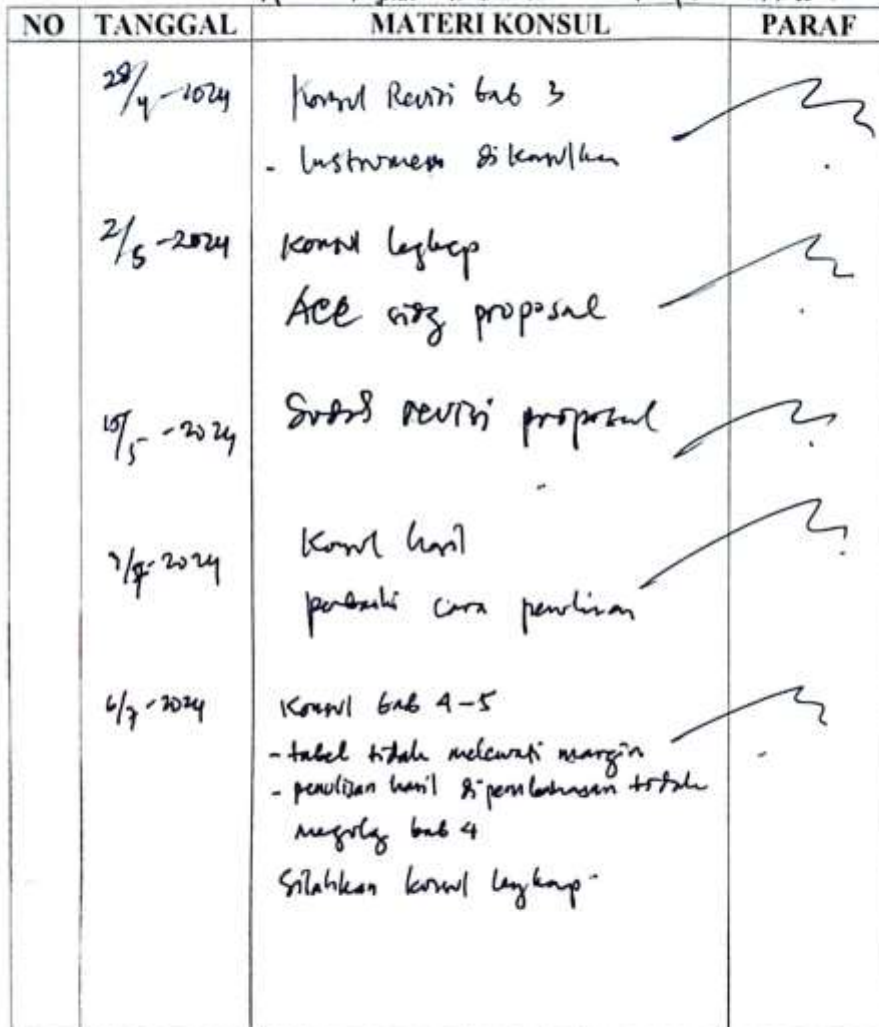 NO TANGGAL MATERI KONSUL PARAF
28/4-2024 Konsul Revisi bab 3
- Instrumen dikonsulkan
2/5-2024 Konsul lengkap
ACC sidg proposal
/5-2024 Sudah revisi proposal
/7-2024 Konsul hasil
perbaiki cara penulisan
6/7-2024 Konsul bab 4-5
- tabel tidak melewati margin
- penulisan hasil di pembahasan tidak
megulag bab 4
Silahkan konsul lengkap